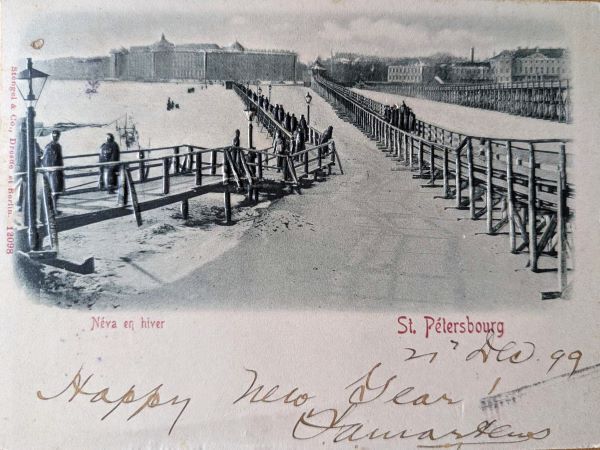 Stengel & Co., Dresde et Berlin. 12098
Néva en hiver
St. Pétersbourg
Dec. 99
Happy New Year!